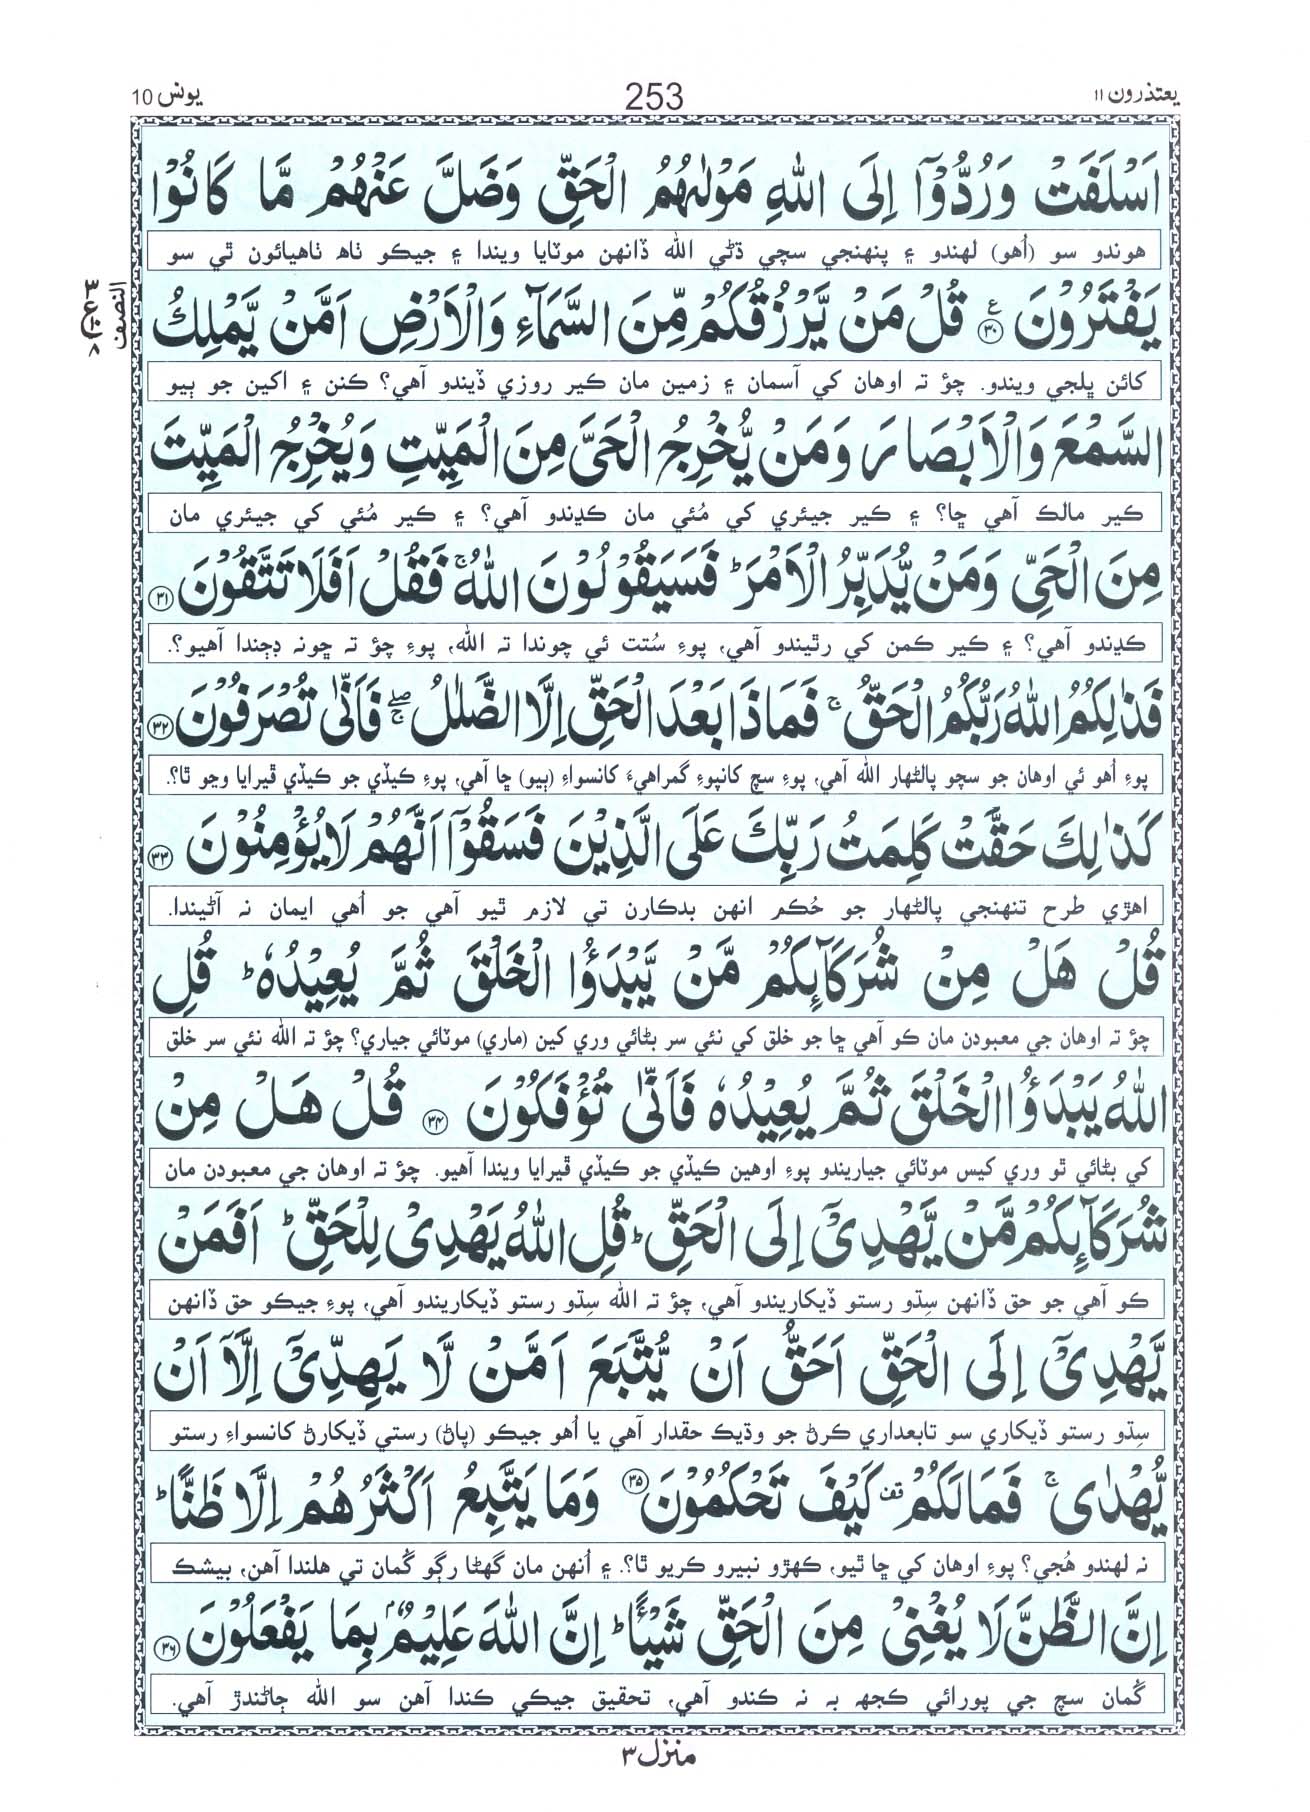 يعتذرون ١١ 253 يونس 10
اَسْلَفَتْ وَرُدُّوْٓا اِلَى اللّٰهِ مَوْلٰىهُمُ الْحَقِّ وَضَلَّ عَنْهُمْ مَّا كَانُوْا
هوندو سو (اُهو) لهندو ۽ پنهنجي سچي ڌڻي الله ڏانهن موٽايا ويندا ۽ جيڪو ٺاهہ ٺاهيائون ٿي سو
يَفْتَرُوْنَ ؏ ﴿۳۰﴾ قُلْ مَنْ يَّرْزُقُكُمْ مِّنَ السَّمَآءِ وَالْاَرْضِ اَمَّنْ يَّمْلِكُ
النصف
٣ ع ٨
کائن ڀلجي ويندو. چؤ تہ اوهان کي آسمان ۽ زمين مان ڪير روزي ڏيندو آهي؟ ڪنن ۽ اکين جو ٻيو
السَّمْعَ وَالْاَبْصَارَ وَمَنْ يُّخْرِجُ الْحَيَّ مِنَ الْمَيِّتِ وَيُخْرِجُ الْمَيِّتَ
ڪير مالڪ آهي ڇا؟ ۽ ڪير جيئري کي مُئي مان ڪڍندو آهي؟ ۽ ڪير مُئي کي جيئري مان
مِنَ الْحَيِّ وَمَنْ يُّدَبِّرُ الْاَمْرَ ؕ فَسَيَقُوْلُوْنَ اللّٰهُ ۚ فَقُلْ اَفَلَا تَتَّقُوْنَ ﴿۳۱﴾
ڪڍندو آهي؟ ۽ ڪير ڪمن کي رٿيندو آهي، پوءِ سُتت ئي چوندا تہ الله، پوءِ چؤ تہ ڇونہ ڊڄندا آهيو؟.
فَذٰلِكُمُ اللّٰهُ رَبُّكُمُ الْحَقُّ ۚ فَمَاذَا بَعْدَ الْحَقِّ اِلَّا الضَّلٰلُ ۖۚ فَاَنّٰى تُصْرَفُوْنَ ﴿۳۲﴾
پوءِ اُهو ئي اوهان جو سچو پالڻهار الله آهي، پوءِ سچ کانپوءِ گمراهيءَ کانسواءِ (ٻيو) ڇا آهي، پوءِ ڪيڏي جو ڪيڏي ڦيرايا وڃو ٿا؟.
كَذٰلِكَ حَقَّتْ كَلِمَتُ رَبِّكَ عَلَى الَّذِيْنَ فَسَقُوْٓا اَنَّهُمْ لَا يُؤْمِنُوْنَ ﴿۳۳﴾
اهڙي طرح تنهنجي پالڻهار جو حُڪم انهن بدڪارن تي لازم ٿيو آهي جو اُهي ايمان نہ آڻيندا.
قُلْ هَلْ مِنْ شُرَكَآئِكُمْ مَّنْ يَّبْدَؤُا الْخَلْقَ ثُمَّ يُعِيْدُهٗ ؕ قُلِ
چؤ تہ اوهان جي معبودن مان ڪو آهي ڇا جو خلق کي نئي سر بڻائي وري کين (ماري) موٽائي جياري؟ چؤ تہ الله نئي سر خلق
اللّٰهُ يَبْدَؤُا الْخَلْقَ ثُمَّ يُعِيْدُهٗ فَاَنّٰى تُؤْفَكُوْنَ ﴿۳۴﴾ قُلْ هَلْ مِنْ
کي بڻائي ٿو وري کيس موٽائي جياريندو پوءِ اوهين ڪيڏي جو ڪيڏي ڦيرايا ويندا آهيو. چؤ تہ اوهان جي معبودن مان
شُرَكَآئِكُمْ مَّنْ يَّهْدِيْٓ اِلَى الْحَقِّ ؕ قُلِ اللّٰهُ يَهْدِيْ لِلْحَقِّ ؕ اَفَمَنْ
ڪو آهي جو حق ڏانهن سِڌو رستو ڏيکاريندو آهي، چؤ تہ الله سِڌو رستو ڏيکاريندو آهي، پوءِ جيڪو حق ڏانهن
يَّهْدِيْٓ اِلَى الْحَقِّ اَحَقُّ اَنْ يُّتَّبَعَ اَمَّنْ لَّا يَهِدِّيْٓ اِلَّآ اَنْ
سِڌو رستو ڏيکاري سو تابعداري ڪرڻ جو وڌيڪ حقدار آهي يا اُهو جيڪو (پاڻ) رستي ڏيکارڻ کانسواءِ رستو
يُّهْدٰى ۚ فَمَا لَكُمْ قف كَيْفَ تَحْكُمُوْنَ ﴿۳۵﴾ وَمَا يَتَّبِعُ اَكْثَرُهُمْ اِلَّا ظَنًّا ؕ
نہ لهندو هُجي؟ پوءِ اوهان کي ڇا ٿيو، ڪهڙو نبيرو ڪريو ٿا؟. ۽ اُنهن مان گهڻا رڳو گُمان تي هلندا آهن، بيشڪ
اِنَّ الظَّنَّ لَا يُغْنِيْ مِنَ الْحَقِّ شَيْـًٔا ؕ اِنَّ اللّٰهَ عَلِيْمٌۢ بِمَا يَفْعَلُوْنَ ﴿۳۶﴾
گُمان سچ جي پورائي ڪجهہ بہ نہ ڪندو آهي، تحقيق جيڪي ڪندا آهن سو الله ڄاڻندڙ آهي.
منزل ٣